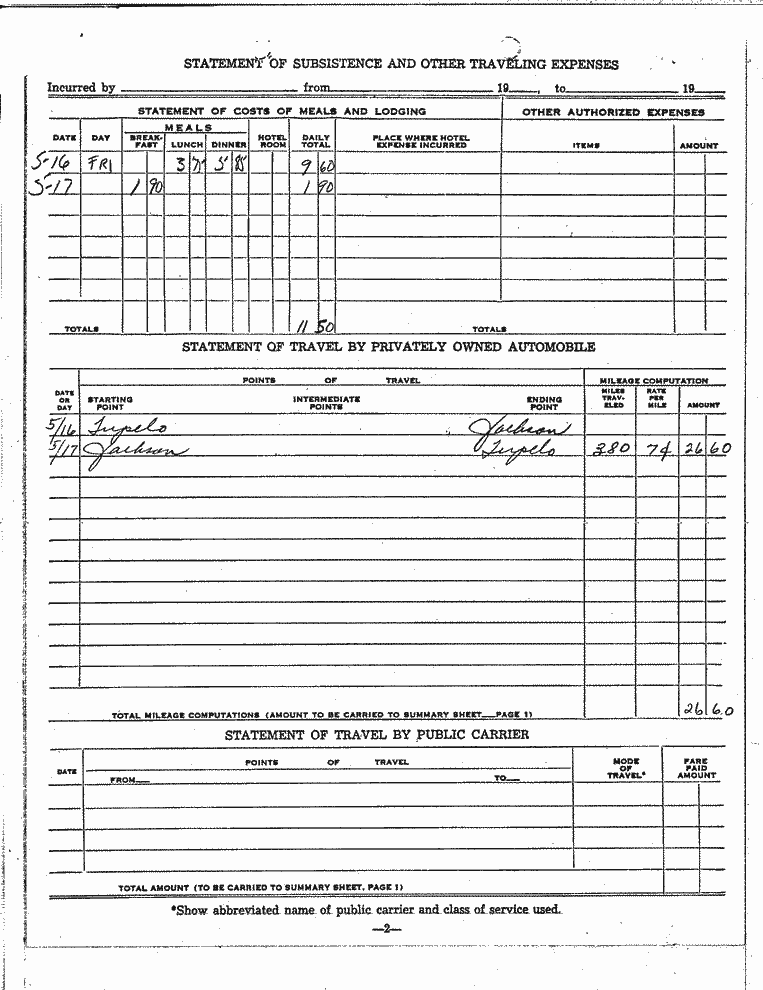 STATEMENT OF SUBSISTENCE AND OTHER TRAVELING EXPENSES
Incurred by from 19 , to 19
STATEMENT OF COSTS OF MEALS AND LODGING OTHER AUTHORIZED EXPENSES
DATE DAY MEALS BREAK-FAST LUNCH DINNER HOTEL ROOM DAILY TOTAL PLACE WHERE HOTEL EXPENSE INCURRED ITEMS AMOUNT
5-16 FRI 3 5 85 9 60
5-17 1 90 1 90
TOTALS 11 50 TOTALS
STATEMENT OF TRAVEL BY PRIVATELY OWNED AUTOMOBILE
DATE OR DAY POINTS OF TRAVEL MILEAGE COMPUTATION
STARTING POINT INTERMEDIATE POINTS ENDING POINT MILES TRAV-ELED RATE PER MILE AMOUNT
5/16 Tupelo Jackson
5/17 Jackson Tupelo 380 7¢ 26 60
TOTAL MILEAGE COMPUTATIONS (AMOUNT TO BE CARRIED TO SUMMARY SHEET—PAGE 1) 26 60
STATEMENT OF TRAVEL BY PUBLIC CARRIER
DATE POINTS OF TRAVEL MODE OF TRAVEL* FARE PAID AMOUNT
FROM— TO—
TOTAL AMOUNT (TO BE CARRIED TO SUMMARY SHEET, PAGE 1)
*Show abbreviated name of public carrier and class of service used.
—2—